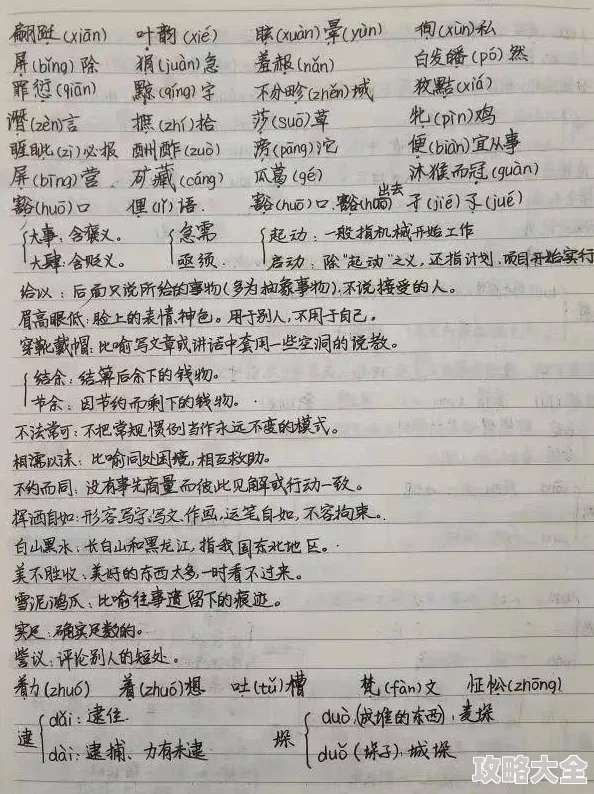 翩跹(xiān) 叶韵(xié) 眩(xuàn)晕(yùn) 徇(xùn)私
屏(bǐng)除 狷(juàn)急 羞赧(nǎn) 白发皤(pó)然
罪愆(qiān) 黥(qíng)字 不分畛(zhěn)域 狡黠(xiá)
谮(zèn)言 摭(zhí)拾 莎(suō)草 牝(pìn)鸡
睚眦(zì)必报 酬酢(zuò) 滂(pāng)沱 便(biàn)宜从事
屏(bīng)营 矿藏(cáng) 瓜葛(gé) 沐猴而冠(guàn)
豁(huō)口 俚(lǐ)语. 豁(huō)口. 豁(huō)出去 孑(jié)孓(jué)
大事:含褒义。 急需 起动:一般指机械开始工作
大肆:含贬义。 亟须 启动:除"起动"之义,还指计划,项目开始实行
给以:后面只说所给的事物(多为抽象事物),不说接受的人。
眉高眼低:脸上的表情,神色。用于别人,不用于自己。
穿靴戴帽:比喻写文章或讲话中套用一些空洞的说教。
结余:结算后余下的钱物。
节余:因节约而剩下的钱物。
不法常可:不把常规惯例当作永远不变的模式。
相濡以沫:比喻同处困境,相互救助。
不约而同:没有事先商量而彼此见解或行动一致。
挥洒自如:形容写字,写文,作画,运笔自如,不容拘束。
白山黑水:长白山和黑龙江,指我国东北地区。
美不胜收:美好的东西太多,一时看不过来。
雪泥鸿爪:比喻往事遗留下的痕迹。
实足:确实足数的。
訾议:评论别人的短处。
着力(zhuó) 着(zhuó)想 吐(tǔ)槽 梵(fàn)文 怔忪(zhōng)
逮 dǎi:逮住 垛 duò(成堆的东西),麦垛
dài:逮捕、力有未逮 duǒ(垛子),城垛
攻略大全